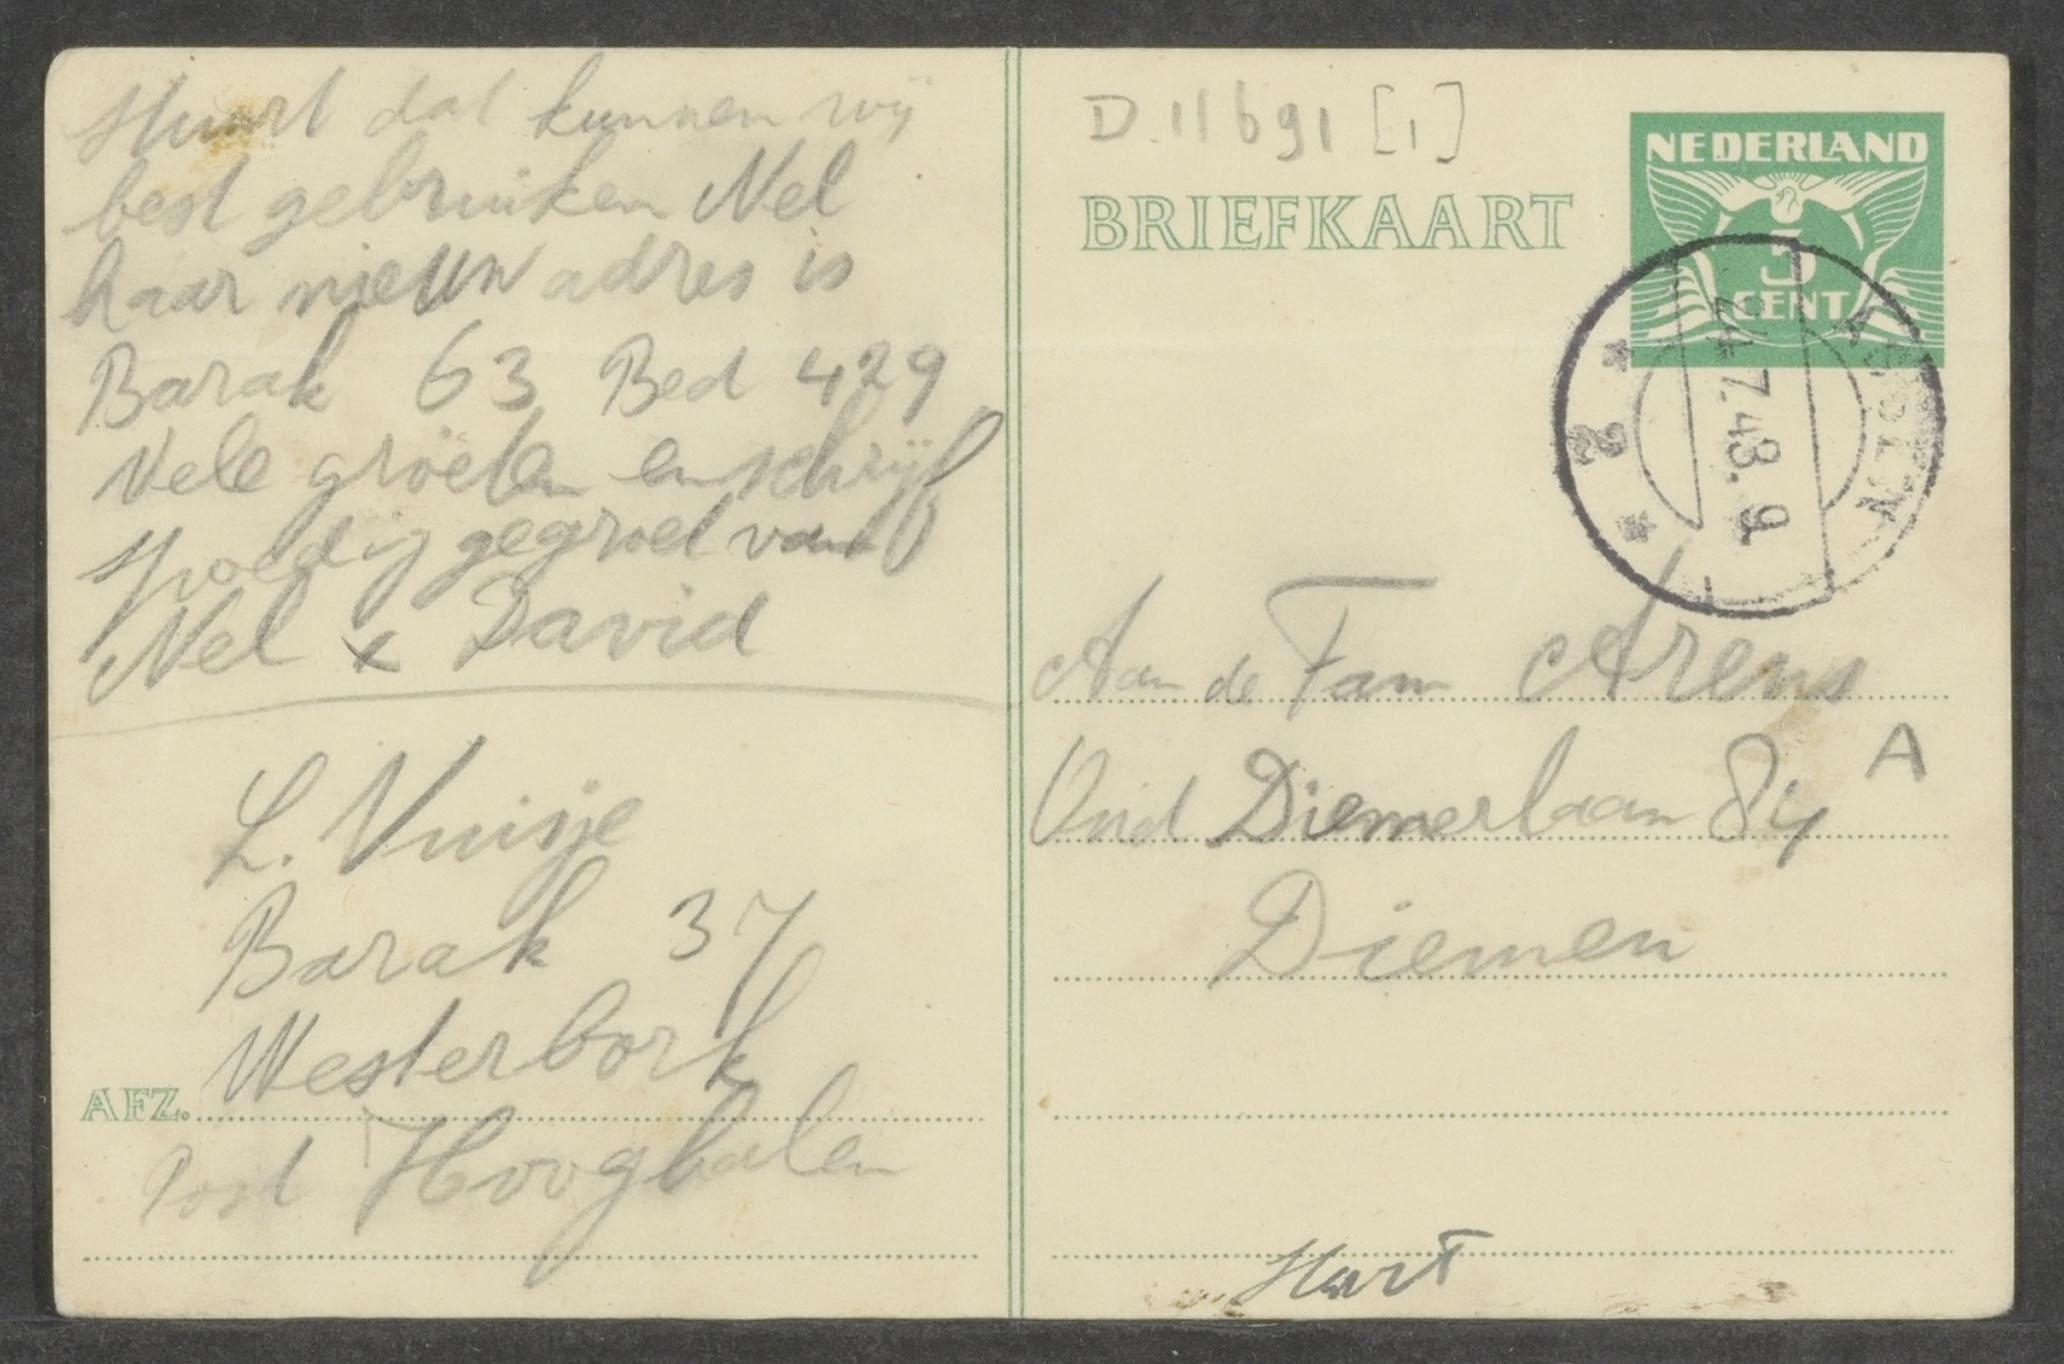 stuurt dat kunnen wij
best gebruiken Nel
haar nieuw adres is
Barak 63 Bed 429
Vele groeten en schrijf
spoedig gegroet van
Nel x David
L. Vuisje
Barak 37
Westerbork
AFZ.
Post Hooghalen
D.11691 [1]
BRIEFKAART
NEDERLAND
5
CENT
ASSEN
24.7.43.9
2
Aan de Fam Arens
Oud Diemerlaan 84 A
Diemen
Hart